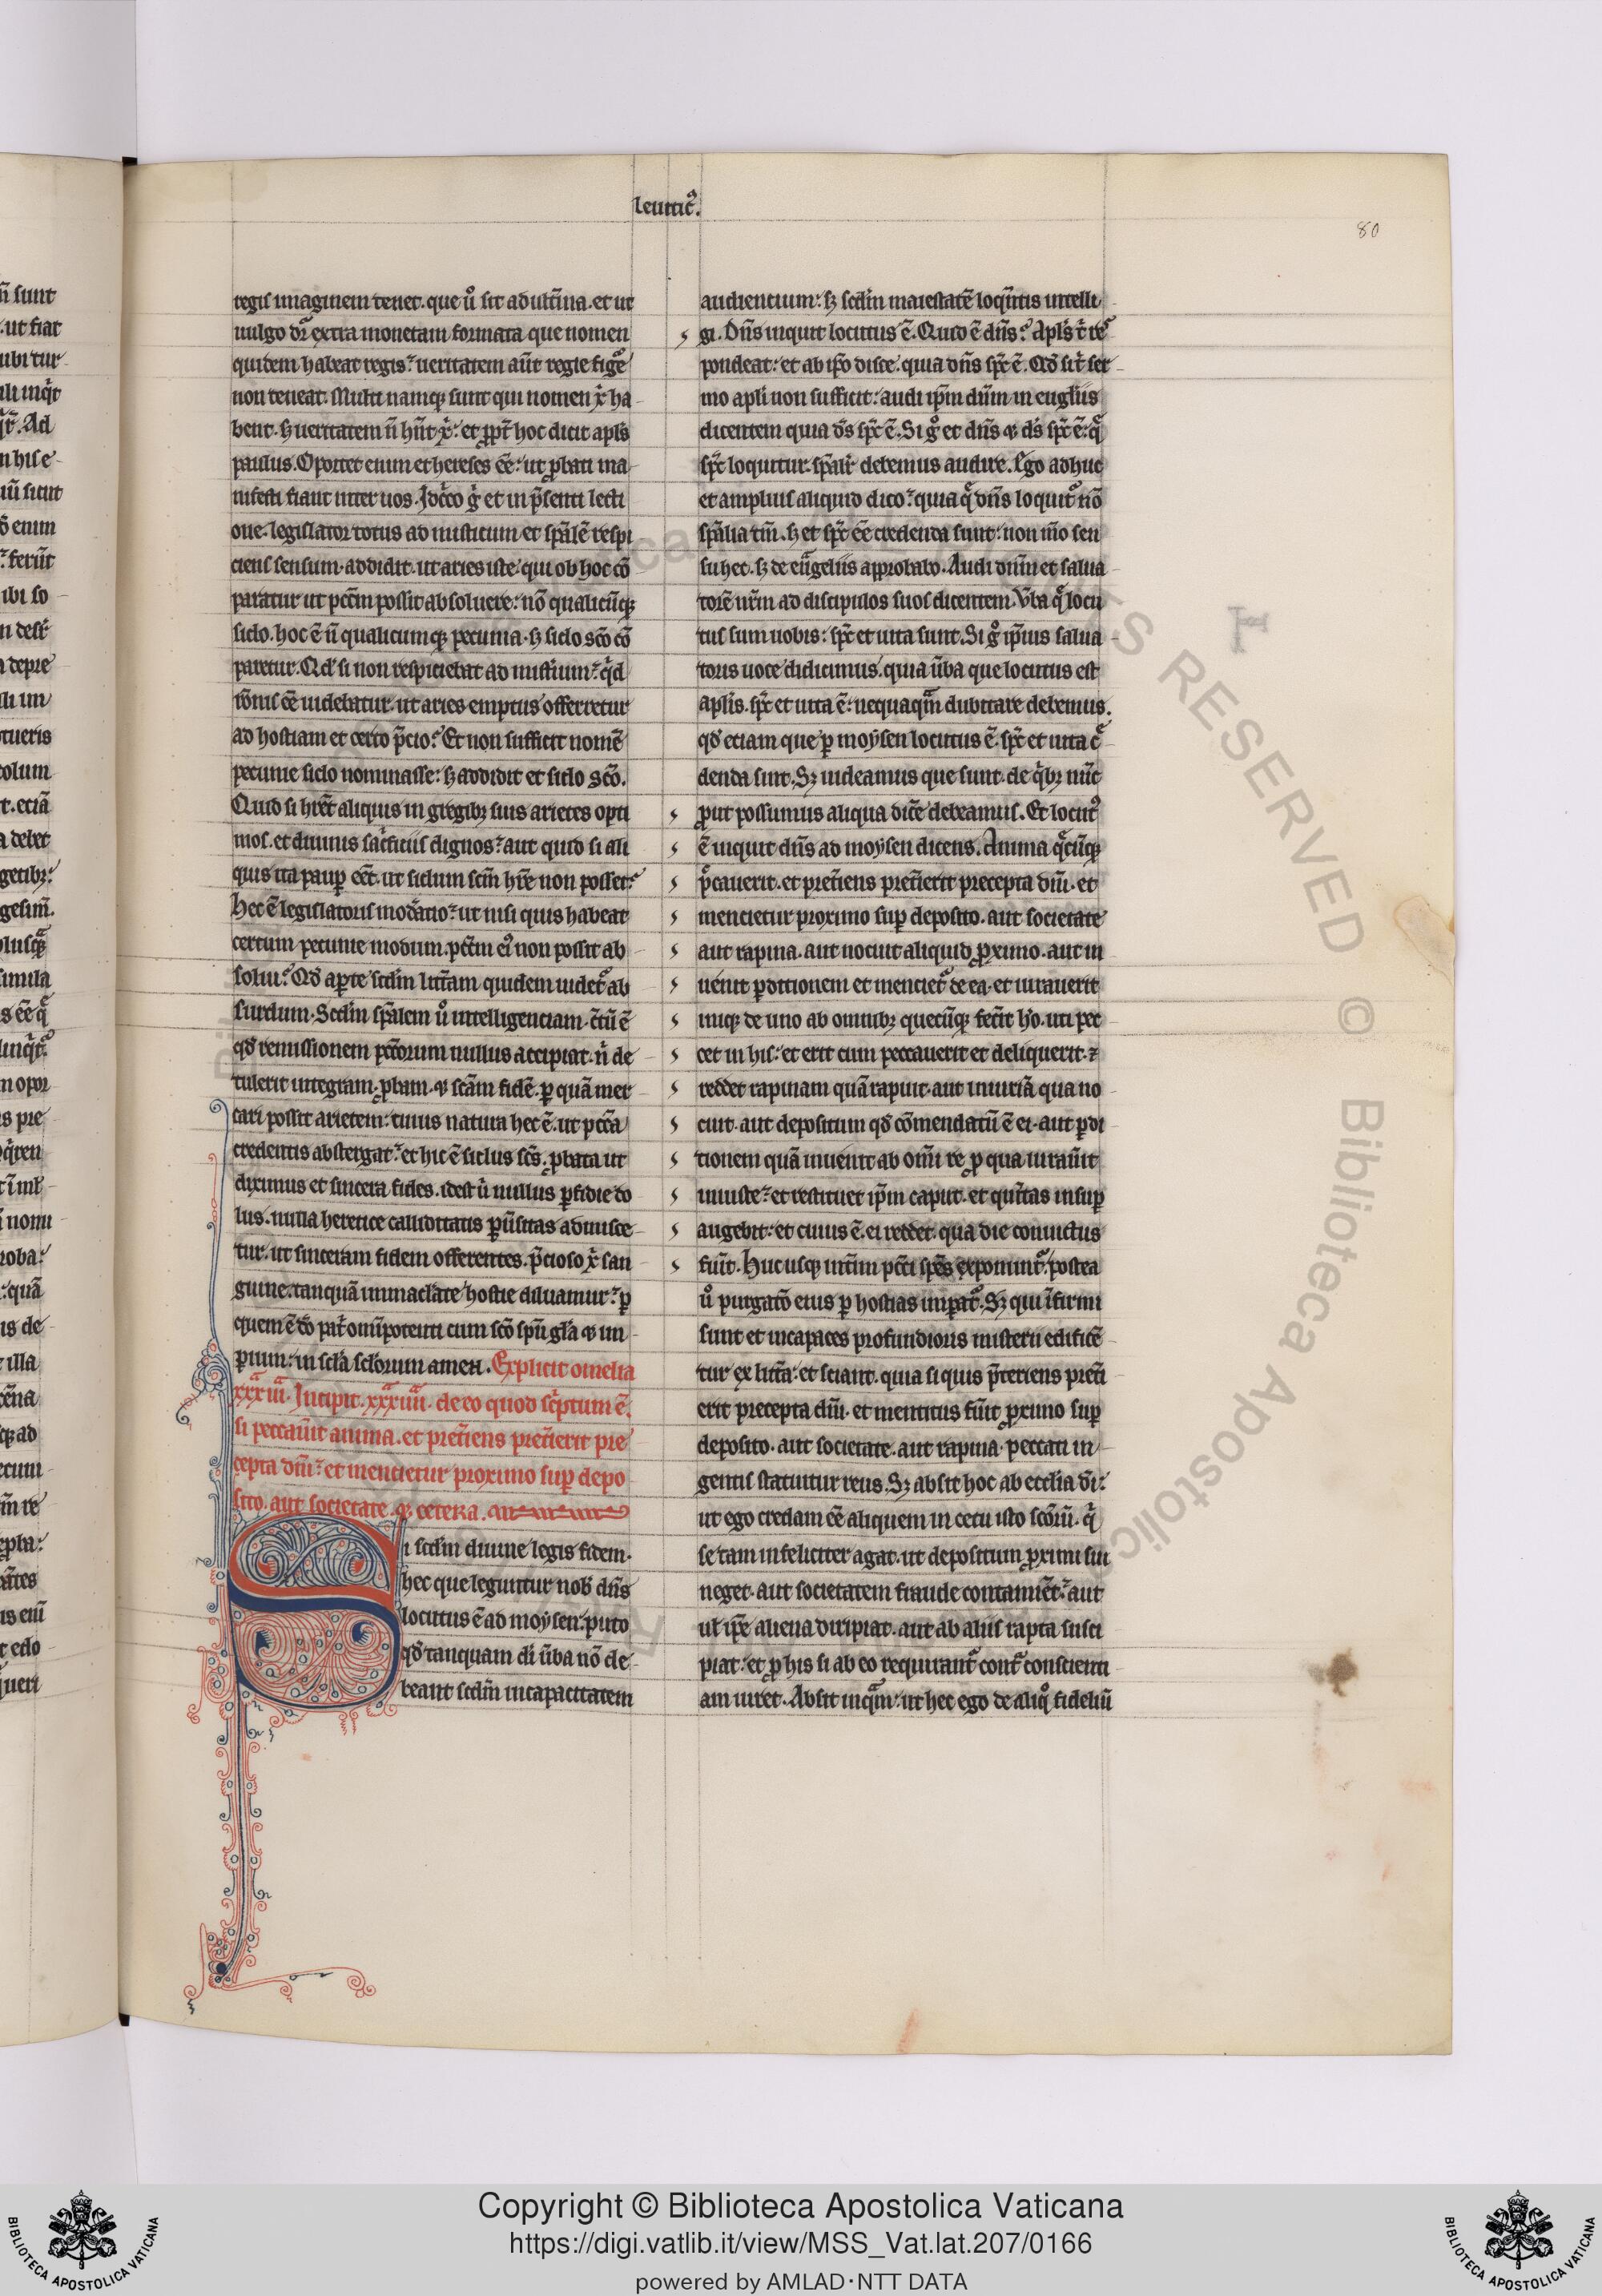 leuitic᷒.
80
regis imaginem tenet. que u͛o sit adult̃ina. et ut
uulgo dr̃ extra monetam formata que nomen
quidem habeat regis. ueritatem aũt regie fige
non teneat. Multi namq; sunt qui nomen xp̃i ha
bent. s; ueritatem ñ hñt xp̃i. et ppt̃ hoc dicit apl̃s
paulus. Oportet enim et hereses eẽ. ut pbati ma
nifesti fiant inter uos. Idcc̃o g̃ et in p̃senti lecti
one. legislator totus ad misticum et sp̃alẽ respi
ciens sensum. addidit. ut aries iste qui ob hoc cõ
paratur ut pcc̃m possit absoluere. nõ qualicũq;
siclo. hoc ẽ ñ qualicumq; pecunia. s; siclo sc̃o cõ
paretur. Qd̃ si non respiciebat ad misticum. qd
rõnis eẽ uidebatur. ut aries emptus offerretur
ad hostiam et certo p̃cio. Et non sufficit nomẽ
pecunie siclo nominasse. s; addidit et siclo sc̃o.
Quid si hr̃et aliquis in gregib; suis arietes opti
mos. et diuinis sac̃ficiis dignos. aut quid si ali
quis ita paup eẽt. ut siclum sc̃m hr̃e non posset.
Hec ẽ legislatoris modãtio. ut nisi quis habeat
certum pecunie modum. pcc̃m ei᷒ non possit ab
solui. Qd̃ apte scd̃m litt̃am quidem uidet᷑ ab
surdum. Scd̃m sp̃alem u͛o intelligenciam. c̃tũ ẽ
qd̃ remissionem pcc̃orum nullus accipiat. ñ de
tulerit integram. pbam. & sc̃am fidẽ. p quã mer
cari possit arietem. cuius natura hec ẽ. ut pcc̃a
credentis abstergat. et hic ẽ siclus sc̃s. pbata ut
diximus et sincera fides. idest ũ nullus pfidie do
lus. nulla heretice calliditatis pũsitas admisce
tur. ut sinceram fidem offerentes. p̃cioso xp̃i san
guine. tanquã immaculate hostie diluamur. p
quem ẽ dõ pat̃ omĩpotenti cum sc̃o sp̃u gl̃a & im
pium. in scl̃a scl̃orum amen. Explicit omelia
xxxiiia. Incipit. xxxiiiia. de eo quod sc̃ptum ẽ.
si peccaũit anima. et pret̃iens pret̃ierit pre
cepta dñi. et mencietur proximo sup depo
sito. aut societate. q; cetera.
Si scd̃m diuine legis fidem.
hec que leguntur nob̃ dñs
locutus ẽ ad moysen. puto
qd̃ tanquam di ũba nõ de
beant scd̃m incapacitatem
audientium. s; scd̃m maiestatẽ loq̃ntis intelli
gi. Dñs inquit locutus ẽ. Quid ẽ dñs. Apl̃s t̃ res
pondeat. et ab ip̃o disce. quia dñs sp̃c ẽ. Qd̃ si t̃ ser
mo apl̃i non sufficit. audi ip̃m dñm in euglĩis
dicentem quia d̃s sp̃c ẽ. Si g̃ et dñs & d̃s sp̃c ẽ. q̃
sp̃c loquitur. sp̃alr̃ debemus audire. Ego adhuc
et amplius aliquid dico. quia q̃ dñs loquit᷑ nõ
sp̃alia tm̃. s; et sp̃c eẽ credenda sunt. non m̃o sen
su hec. s; de eũgeliis approbabo. Audi dñm et salua
torẽ nr̃m ad discipulos suos dicentem. Vba q̃ locu
tus sum uobis. sp̃c et uita sunt. Si g̃ ip̃ius salua
toris uoce didicimus. quia ũba que locutus est
apl̃is. sp̃c et uita ẽ. nequaq̃m dubitare debemus.
qd̃ etiam que p moysen locutus ẽ. sp̃c et uita c̃
denda sint. Sz uideamus que sunt. de q̃b; nũc
put possumus aliqua dic̃e debeamus. Et locut᷒
ẽ inquit dñs ad moysen dicens. Anima q̃cũq;
p̃cauerit. et pret̃iens pret̃ierit precepta dñi. et
mencietur proximo sup deposito. aut societate
aut rapina. aut nocuit aliquid pximo. aut in
uenit pditionem et menciet᷑ de ea. et iurauerit
iniq; de uno ab omnib; quecũq; fec̃it hõ. uti pec
cet in his. et erit cum peccauerit et deliquerit. ⁊
reddet rapinam quã rapuit. aut iniuriã qua no
cuit. aut depositum qd̃ cõmendatũ ẽ ei. aut pdi
tionem quã inuenit ab om̃i re p qua iurauit
iniuste. et restituet ip̃m caput. et quĩtas insup
augebit. et cuius ẽ. ei reddet. qua die conuictus
fũit. Huc usq; intĩm pcc̃i sp̃es exponunt᷑. postea
u͛o purgatõ eius p hostias impat᷑. Sz qui ĩfirmi
sunt et incapaces profundioris misterii edificẽ
tur ex litt̃a. et sciant. quia si quis p̃teriens pret̃i
erit precepta dñi. et mentitus fũit pximo sup
deposito. aut societate. aut rapina. peccati in
gentis statuitur reus. Sz absit hoc ab ecclĩa di.
ut ego credam eẽ aliquem in cetu isto sc̃orũ. q̃
se tam infeliciter agat. ut depositum pximi sui
neget. aut societatem fraude contamiẽt. aut
ul ip̃e aliena diripiat. aut ab aliis rapta susci
piat. et p his si ab eo requirant᷑ cont̃ conscienti
am iuret. Absit inq̃m. ut hec ego de aliq᷒ fideliũ
Copyright © Biblioteca Apostolica Vaticana
https://digi.vatlib.it/view/MSS_Vat.lat.207/0166
powered by AMLAD·NTT DATA
BIBLIOTECA APOSTOLICA VATICANA
BIBLIOTECA APOSTOLICA VATICANA